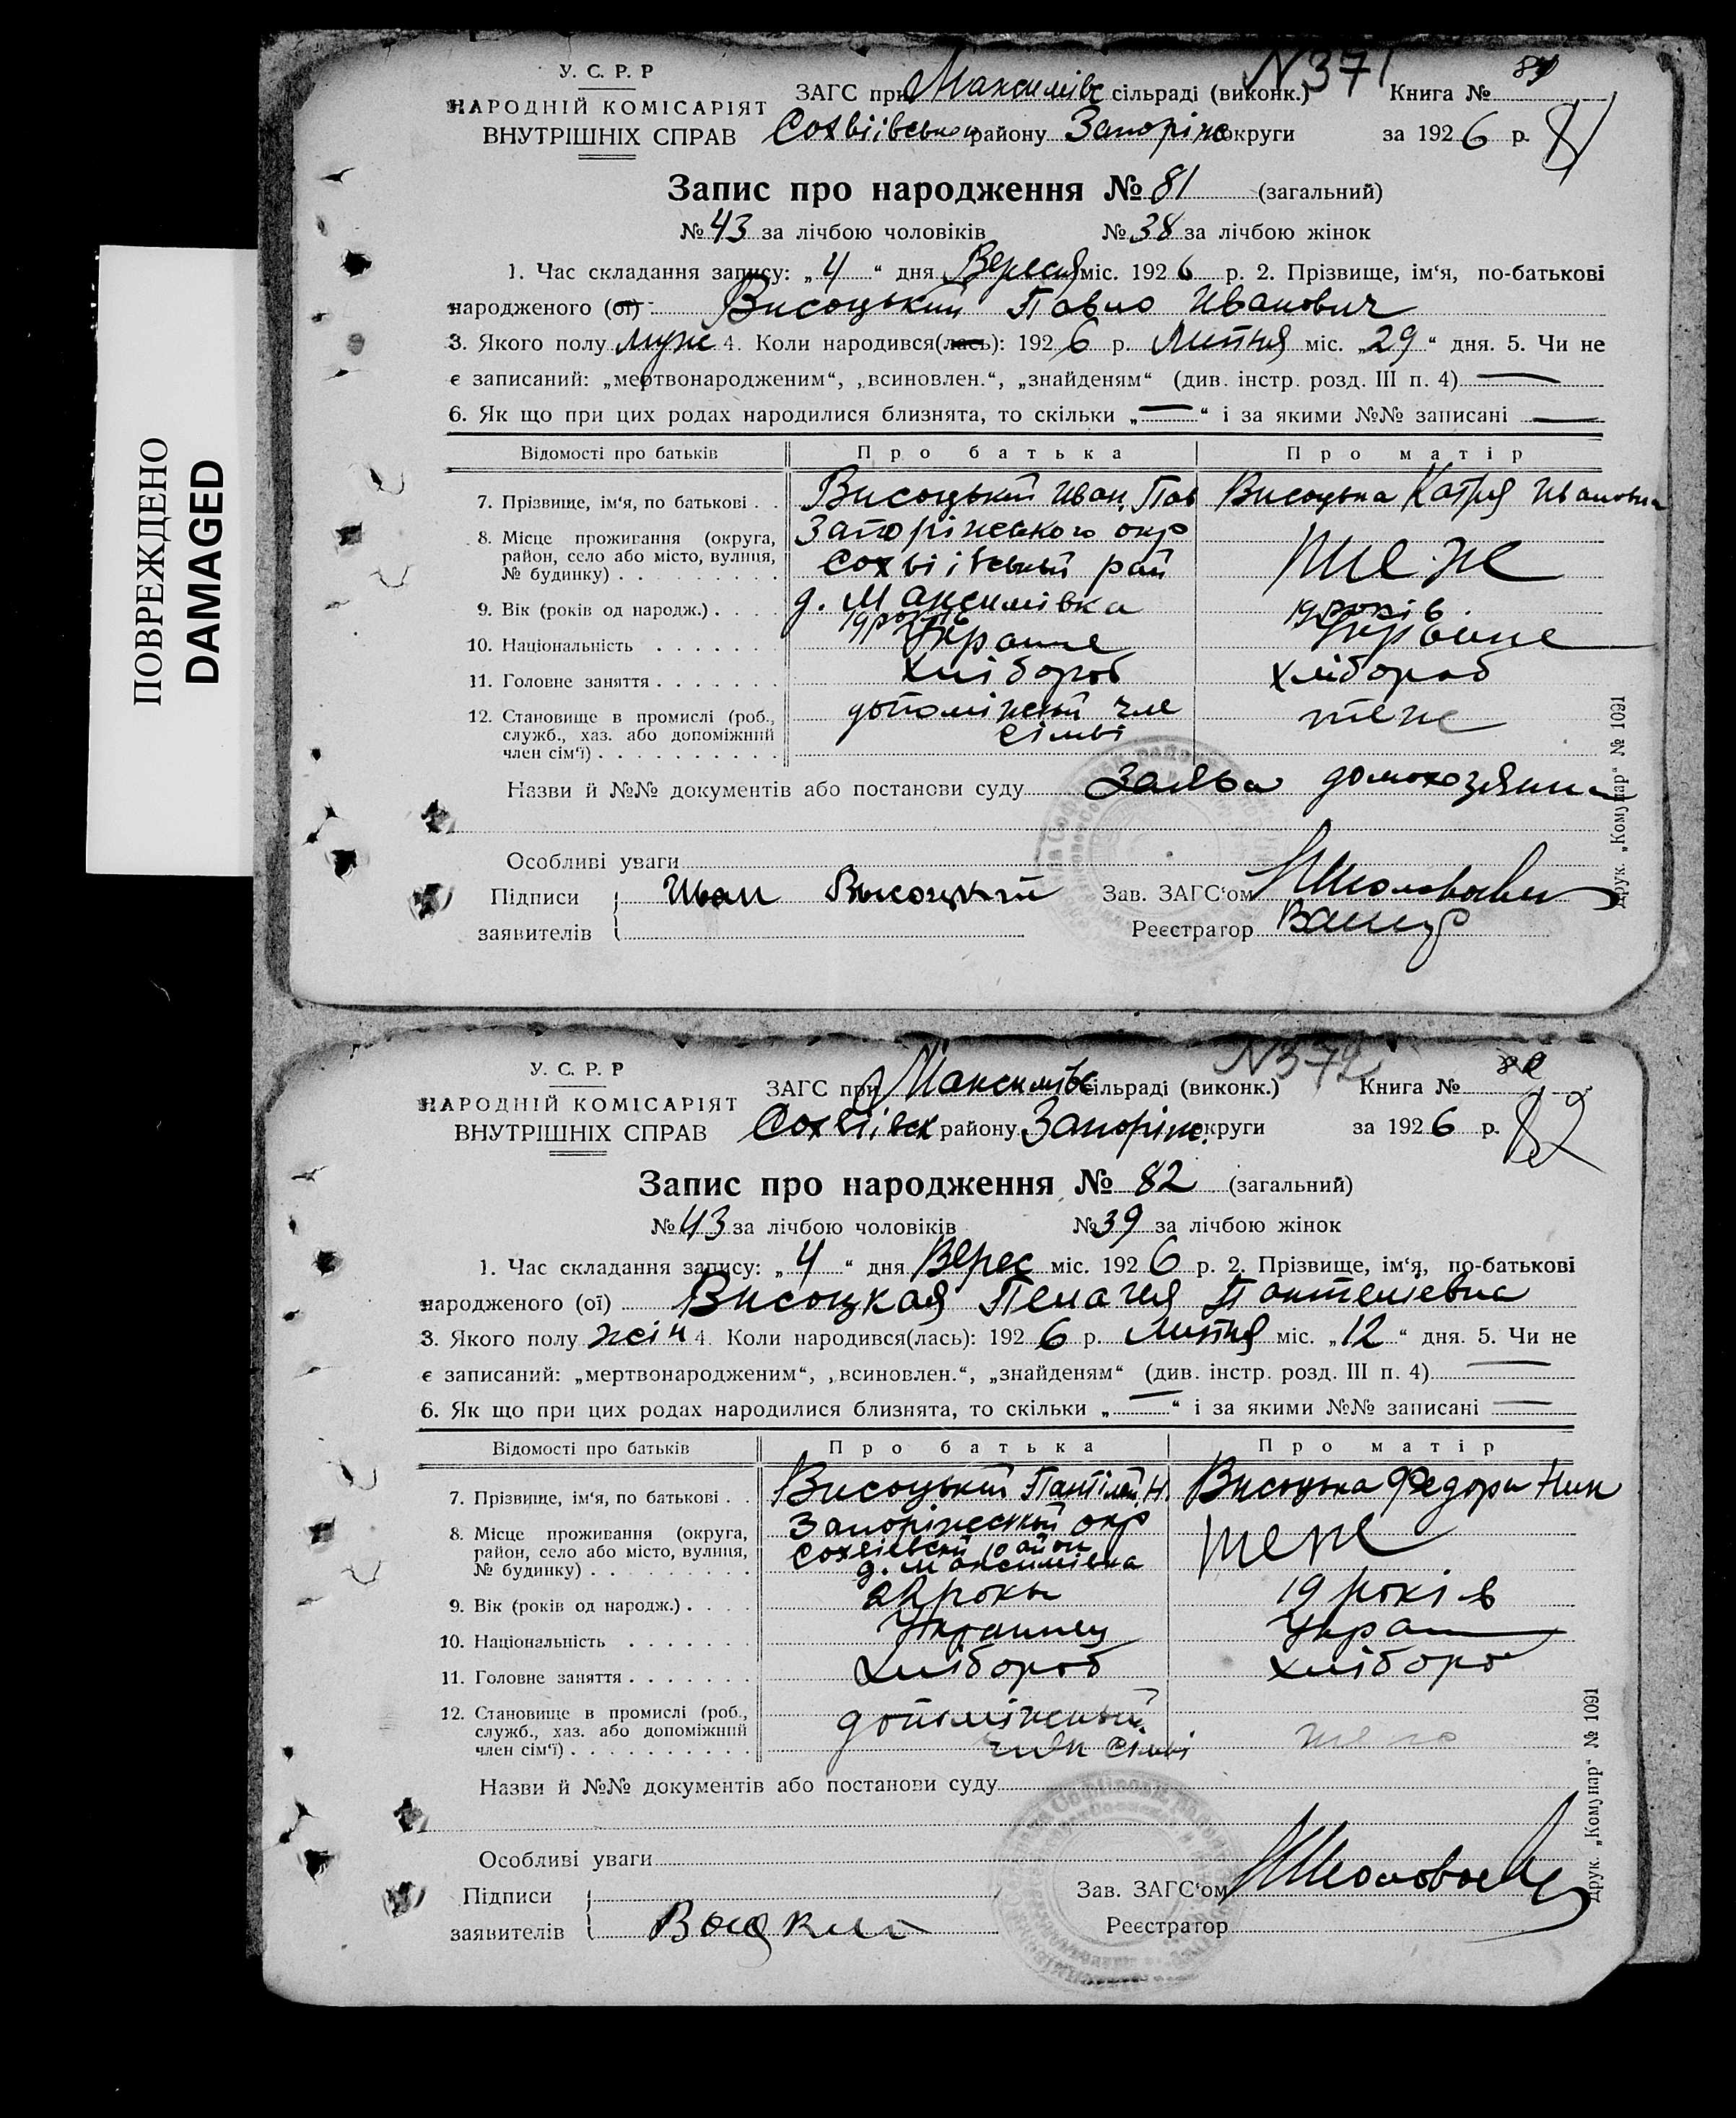 ПОВРЕЖДЕНО
DAMAGED
У. С. Р. Р
НАРОДНІЙ КОМІСАРІЯТ
ВНУТРІШНІХ СПРАВ
N371
ЗАГС при Максимівс сільраді (виконк.) Книга № 81
Сохвіівського району Запоріжс округи за 1926 р. 81
Запис про народження № 81 (загальний)
№ 43 за лічбою чоловіків № 38 за лічбою жінок
1. Час складання запису: „4“ дня Вересня міс. 1926 р. 2. Прізвище, ім‘я, по-батькові
народженого (ої) Височький Павло Иванович
3. Якого полу муж 4. Коли народився(лась): 1926 р. Липня міс. „29“ дня. 5. Чи не
є записаний: „мертвонародженим“, „всиновлен.“, „знайденям“ (див. інстр. розд. III п. 4) —
6. Як що при цих родах народилися близнята, то скільки „—“ і за якими №№ записані —
Відомості про батьків Про батька Про матір
7. Прізвище, ім‘я, по батькові . . Височький Иван. Пав Височька Катря Ивановна
8. Місце проживання (округа, район, село або місто, вулиця, № будинку) . . . Запоріжського окр
Сохвіівський рай
д. Максимівка
теж
9. Вік (років од народж.) . . . . 19 років 19 років
10. Національність . . . . . . . Украине Украине
11. Головне заняття . . . . . . . хлібороб хлібороб
12. Становище в промислі (роб., служб., хаз. або допоміжний член сім‘ї) . . . допоміжній чле
сімьі
теж
Назви й №№ документів або постанови суду Заява домохозяина
Особливі уваги
Підписи Иван Высоцкий Зав. ЗАГС‘ом
заявителів Реєстратор
Друк. „Комунар“ № 1091
У. С. Р. Р
НАРОДНІЙ КОМІСАРІЯТ
ВНУТРІШНІХ СПРАВ
N372
ЗАГС при Максимівс сільраді (виконк.) Книга № 82
Сохвіівск району Запоріж. округи за 1926 р. 82
Запис про народження № 82 (загальний)
№ 43 за лічбою чоловіків № 39 за лічбою жінок
1. Час складання запису: „4“ дня Верес міс. 1926 р. 2. Прізвище, ім‘я, по-батькові
народженого (ої) Височкая Пелагея Пантелієвна
3. Якого полу жін 4. Коли народився(лась): 1926 р. Липня міс. „12“ дня. 5. Чи не
є записаний: „мертвонародженим“, „всиновлен.“, „знайденям“ (див. інстр. розд. III п. 4) —
6. Як що при цих родах народилися близнята, то скільки „—“ і за якими №№ записані —
Відомості про батьків Про батька Про матір
7. Прізвище, ім‘я, по батькові . . Височький Пантілей. Н. Височька Федора Ник
8. Місце проживання (округа, район, село або місто, вулиця, № будинку) . . . Запоріжеський окр
Сохвіівский район
д. Максимівка
теж
9. Вік (років од народж.) . . . . 22 роки 19 років
10. Національність . . . . . . . Украинец Украи
11. Головне заняття . . . . . . . хлібороб хліборо
12. Становище в промислі (роб., служб., хаз. або допоміжний член сім‘ї) . . . допоміжний
член сімьі
Назви й №№ документів або постанови суду
Особливі уваги
Підписи Зав. ЗАГС‘ом
заявителів Реєстратор
Друк. „Комунар“ № 1091